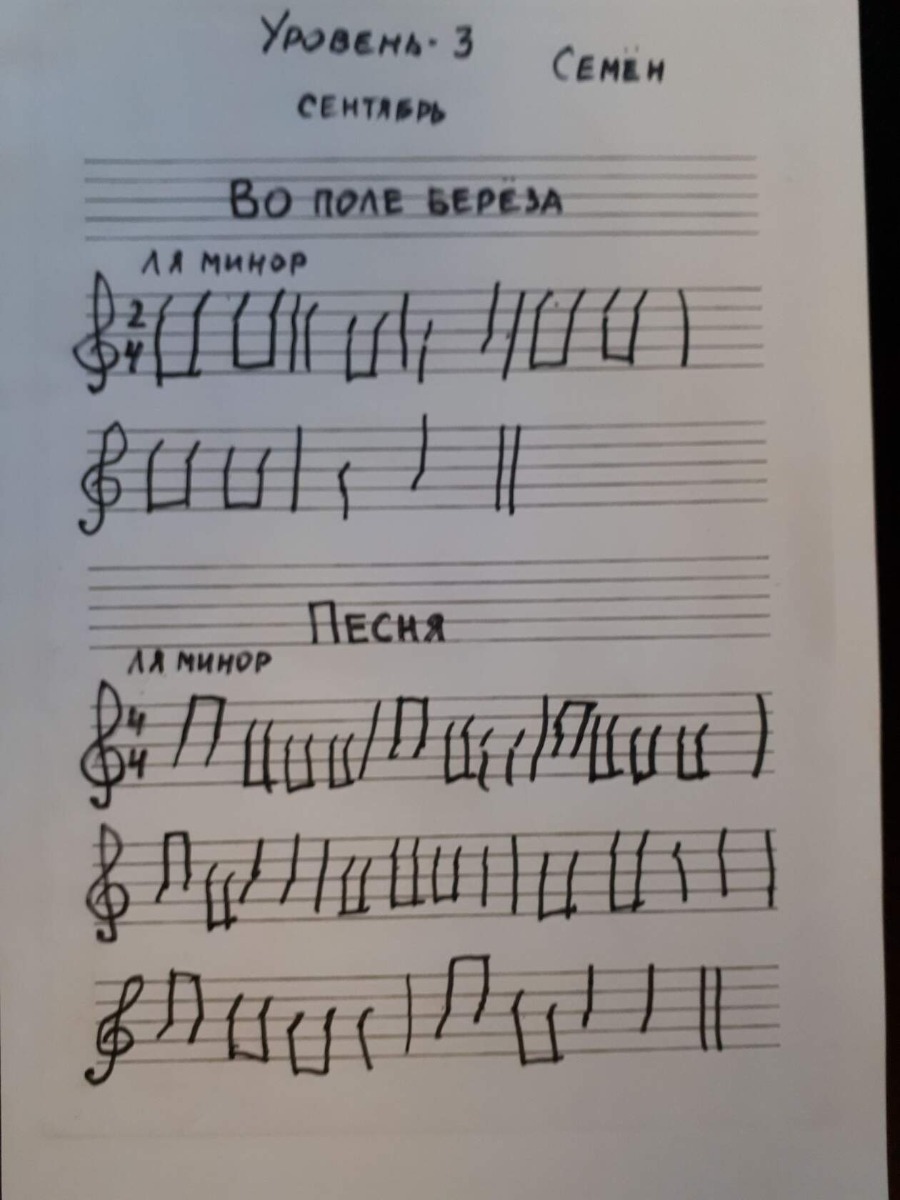 Уровень-3
Семён
сентябрь
Во поле берёза
ля минор
2
4
Песня
ля минор
4
4